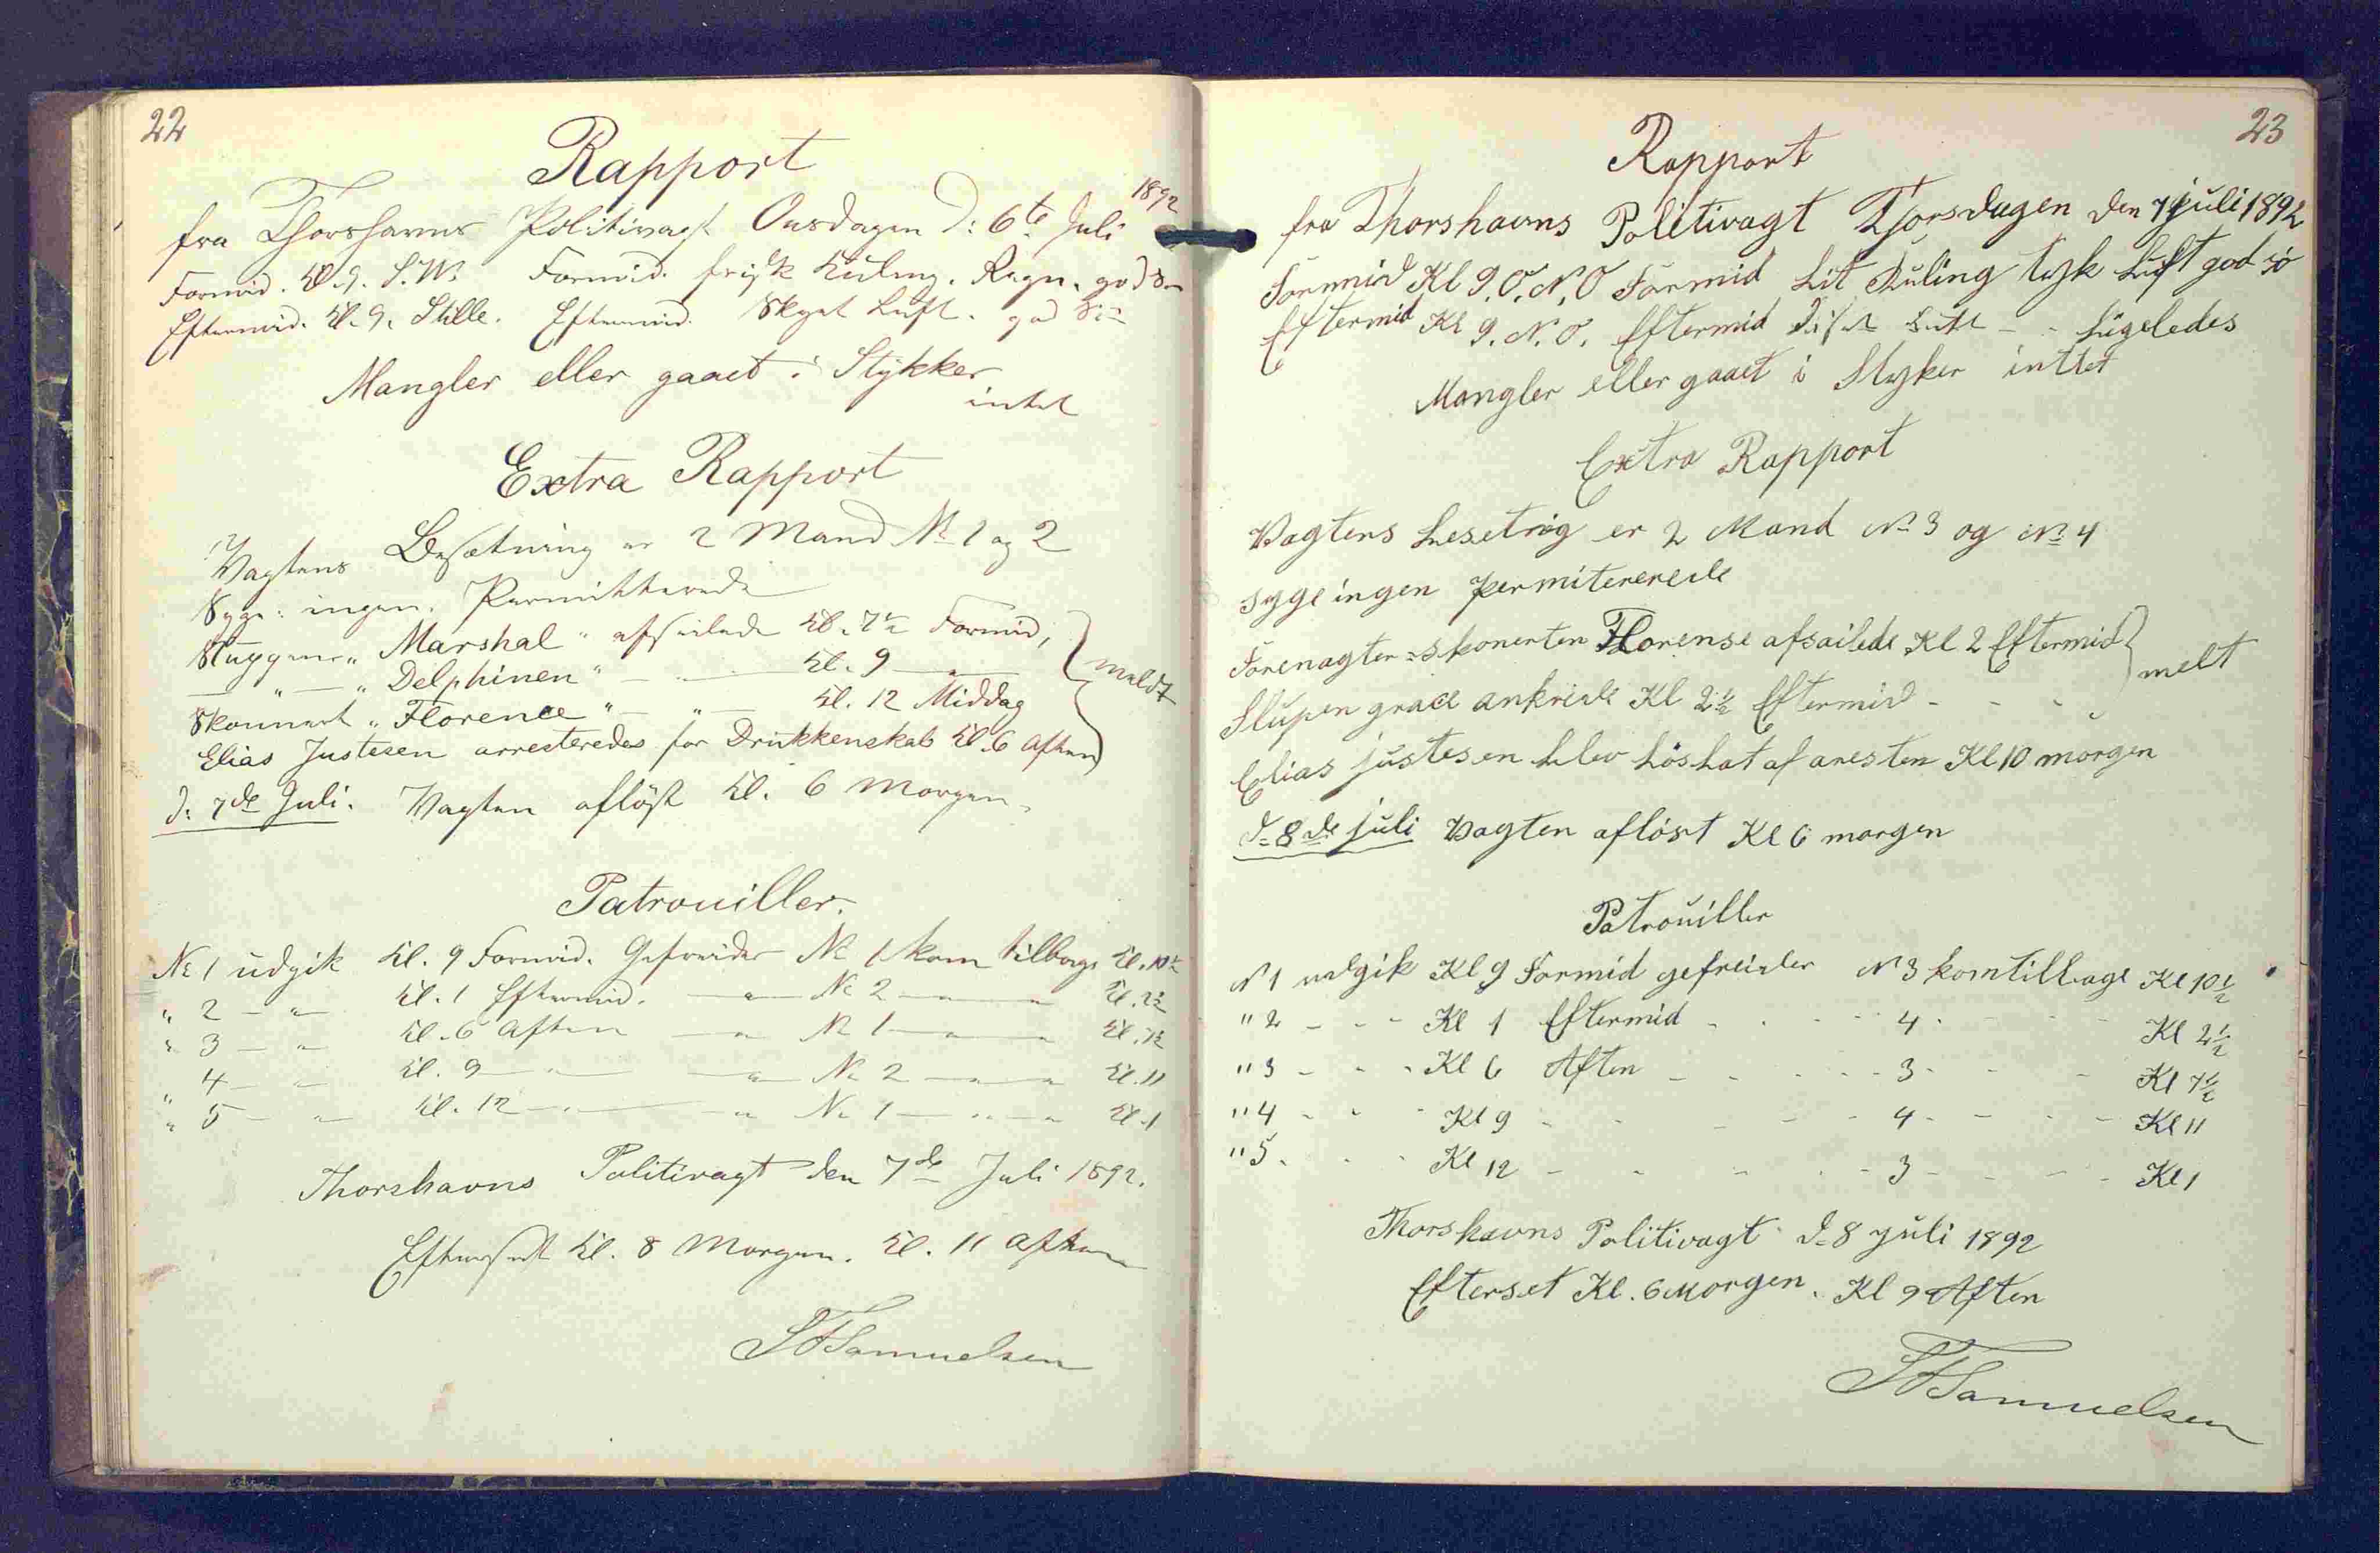 22
Rapport
1892
fra Thorshavns Politivagt Onsdagen d: 6te Juli
Formid. Kl. 9. S.W. Formid. frisk Kuling. Regn. god Sö
Eftermid. Kl. 9. Stille. Eftermid. Skyet Luft. god Sö
Mangler eller gaaet i Stykker
intet
Extra Rapport
Vagtens Besætning er 2 Mand No 1 og 2
Syge: ingen. Permitterede
Sluppen „ Marshal " afseilede Kl. 7½ Formid,
— " — „ Delphinen " — " — Kl. 9 — " —
Skonnert „ Florence " — " — Kl. 12 Middag
meldt
Elias Justesen arresteredes for Drukkenskab Kl. 6 Aften
d: 7de Juli. Vagten aflöst Kl. 6 Morgen.
Patrouiller.
No 1 udgik Kl. 9 Formid. Gefreider No 1 kom tilbage Kl. 10½
" 2 — " — Kl. 1 Eftermid. — " — No 2 — " — " Kl. 2½
" 3 — " — Kl. 6 Aften — " — No 1 — " — " Kl. 7½
" 4 — " — Kl. 9 — " — — " — No 2 — " — " Kl. 11
" 5 — " — Kl. 12 — " — — " — No 1 — " — " Kl. 1
Thorshavns Politivagt den 7de Juli 1892.
Efterseet Kl. 8 Morgen. Kl. 11 Aften
Samuelsen
23
Rapport
fra Thorshavns Politivagt Tjorsdagen den 7 juli 1892
Formid Kl 9. O. N. O Formid Lit Kuling tyk Luft god sö
Eftermid Kl 9. N. O. Eftermid Luft - - Ligeledes
Mangler eller gaaet i Styker inttet
Extra Rapport
Vagtens besetnig er 2 Mand No 3 og No 4
syge ingen permitererede
Forenagter=skonerten Florense afsailede Kl 2 Eftermid
melt
Slupen grace ankrede Kl 2½ Eftermid - - - "
Elias justesen blev löslat af aresten Kl 10 morgen
d=8de juli Vagten aflöst Kl 6 morgen
Patrouiller
N 1 udgik Kl 9 Formid gefreider N 3 kom tilbage Kl 10½
" 2 - - - Kl 1 Eftermid - - - - 4 - - - - Kl 2½
" 3 - - - Kl 6 Aften - - - - - 3 - - - Kl 7½
" 4 - - - Kl 9 - - - - - 4 - - - - Kl 11
" 5 - - - Kl 12 - - - - - 3 - - - - Kl 1
Thorshavns Politivagt d=8 juli 1892
Efterset Kl. 6 Morgen. Kl 9 Aften
Samuelsen